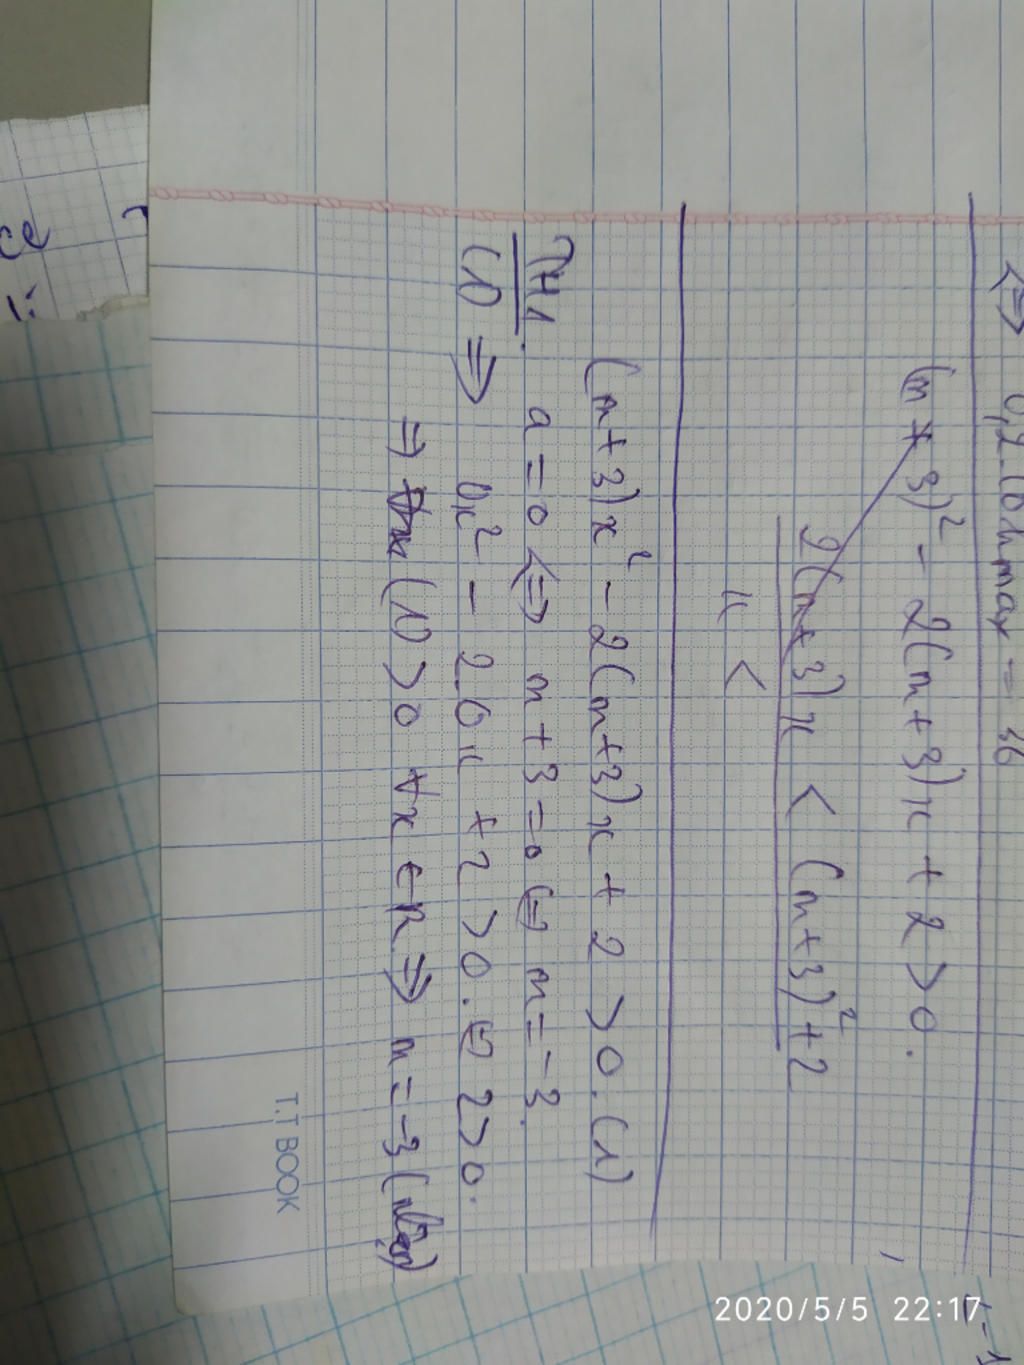 ⇔ 0,2.10hmax = 36
(m+3)² - 2(m+3)x + 2 > 0.
2(m+3)x < (m+3)² + 2
x <
(m+3)x² - 2(m+3)x + 2 > 0. (1)
TH1. a = 0 ⇔ m + 3 = 0 ⇔ m = -3.
(1) ⇒ 0x² - 2.0x + 2 > 0. ⇔ 2 > 0.
⇒ (1) > 0 ∀x ∈ R ⇒ m = -3 (nhận)
T.T BOOK
ce
2020/5/5 22:17